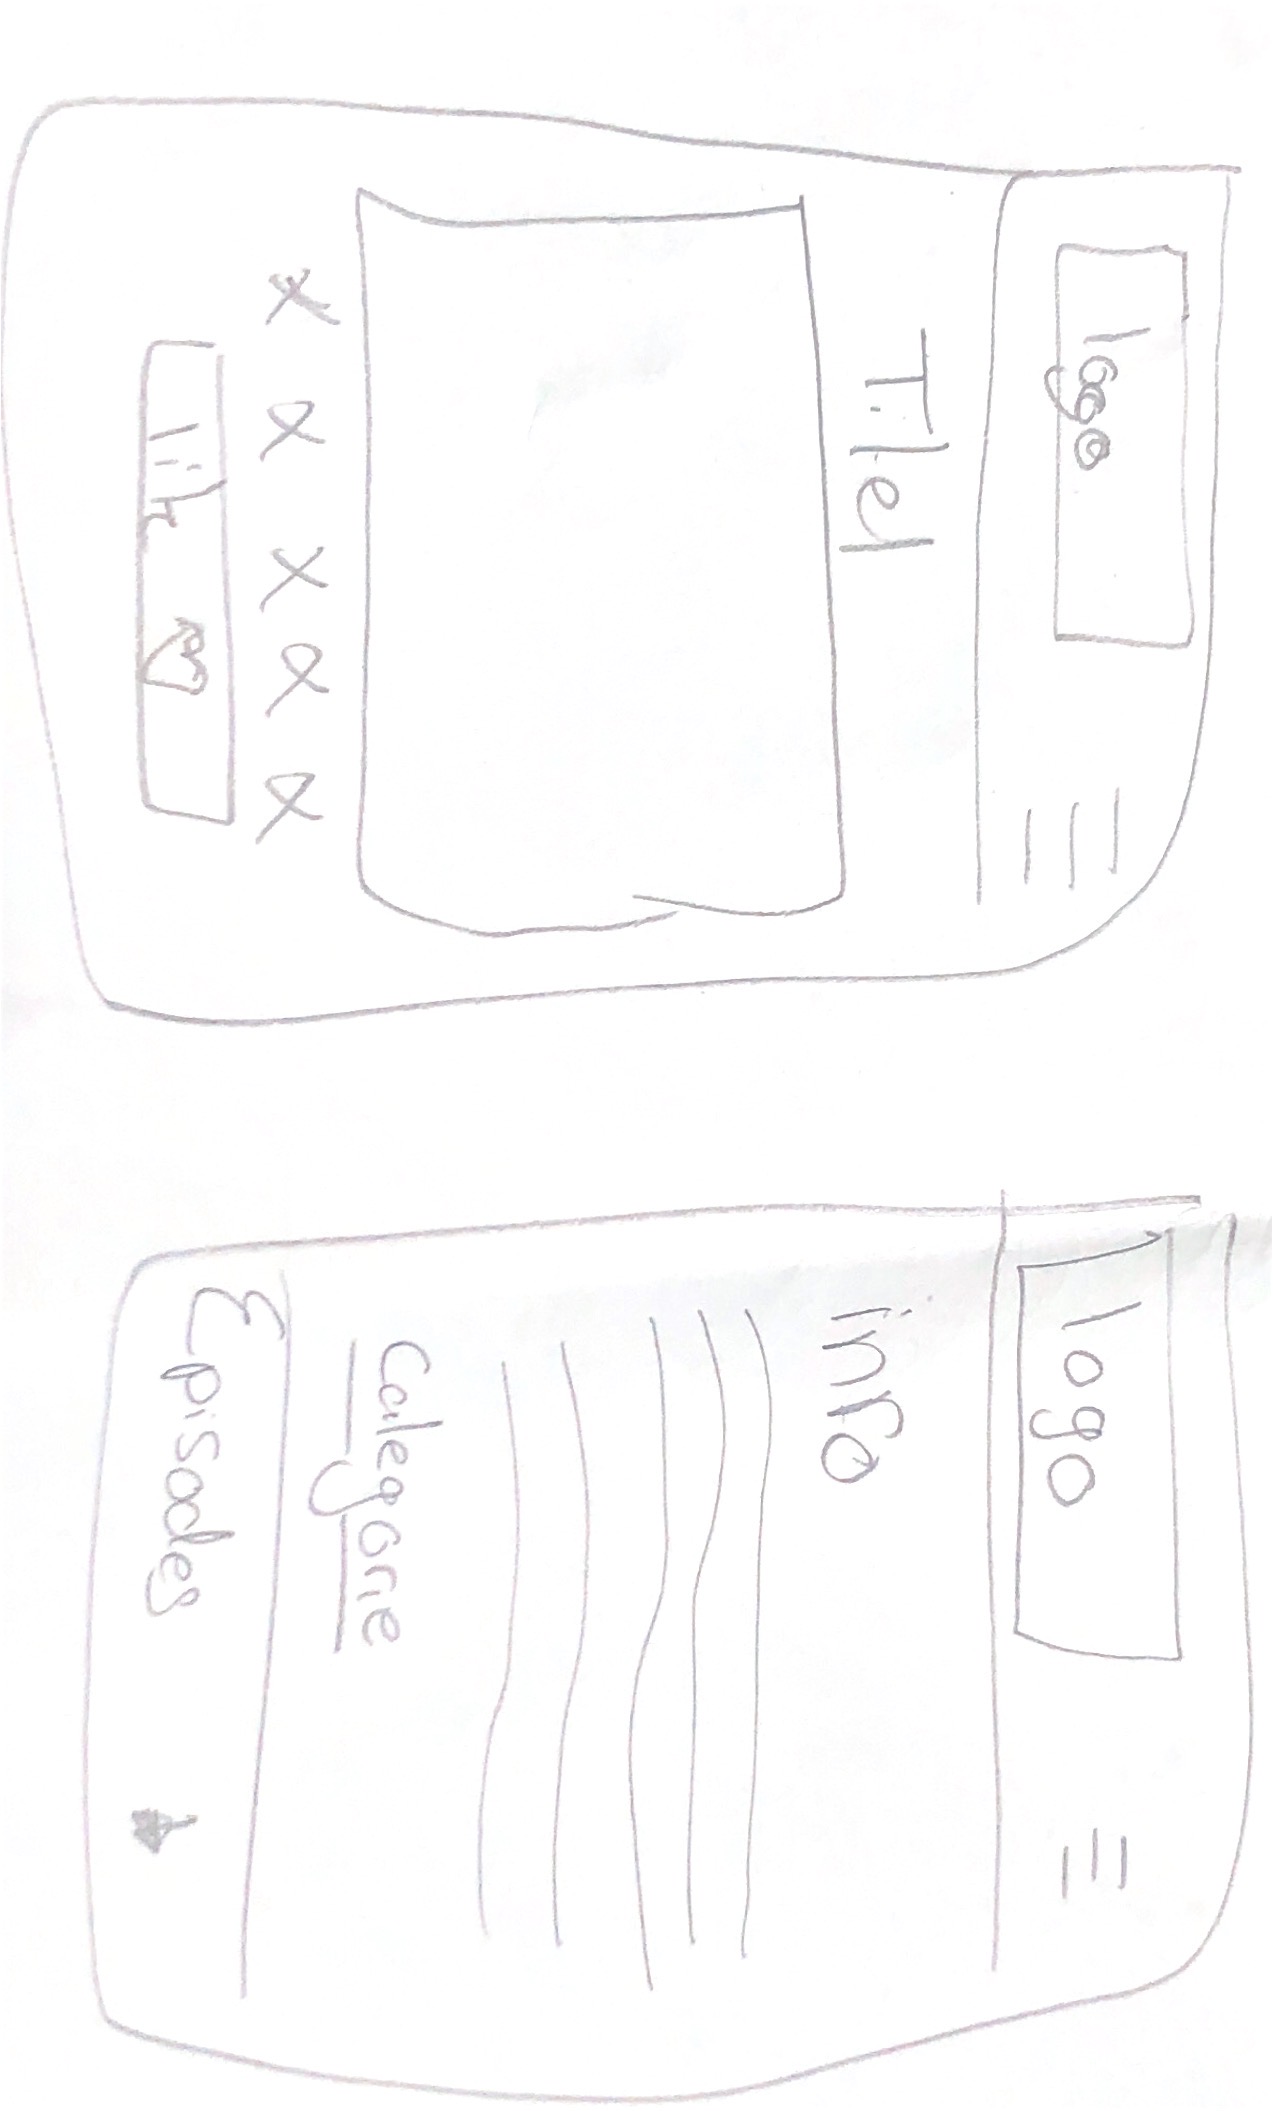 logo
Titel
lik
logo
info
Categorie
Episodes